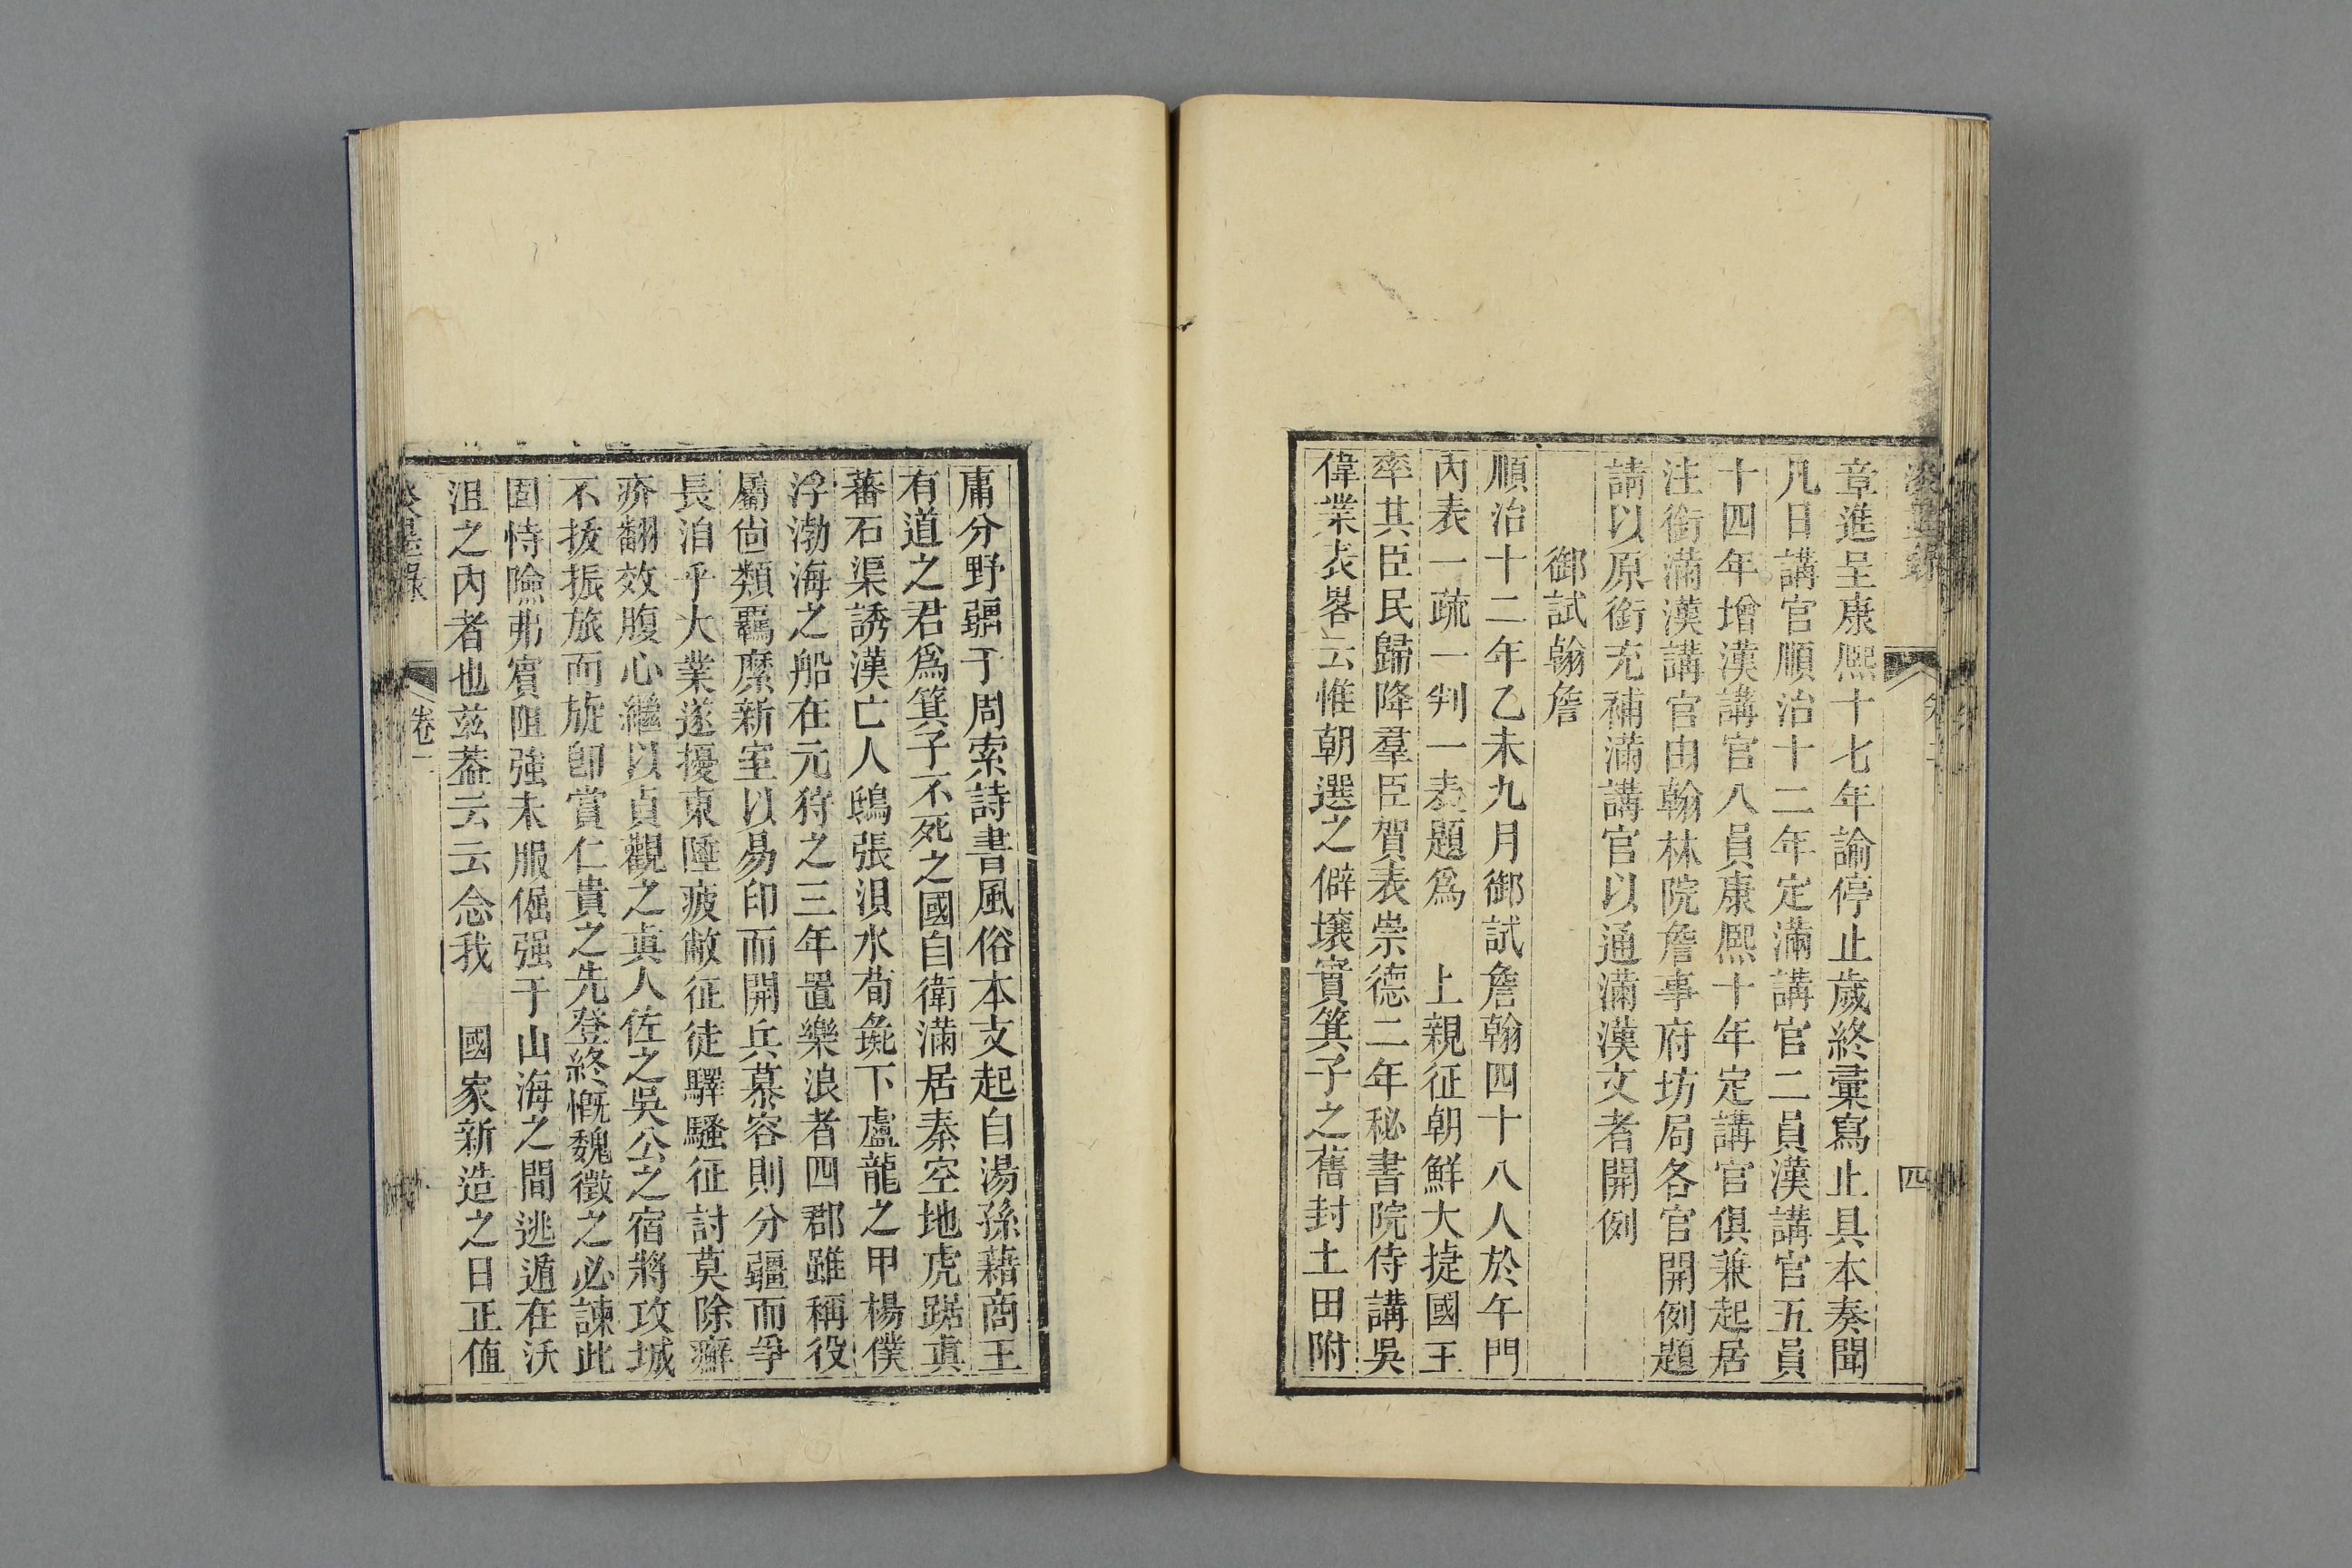 章進呈康熙十七年諭停止歲終彙寫止具本奏聞
凡日講官順治十二年定滿講官二員漢講官五員
十四年增漢講官八員康熙十年定講官俱兼起居
注銜滿漢講官由翰林院詹事府坊局各官開例題
請以原銜充補滿講官以通滿漢文者開例
御試翰詹
順治十二年乙未九月御試詹翰四十八人於午門
內表一疏一判一表題爲 上親征朝鮮大捷國王
率其臣民歸降羣臣賀表崇德二年秘書院侍講吳
偉業表畧云惟朝選之僻壤實箕子之舊封土田附
庸分野疆于周索詩書風俗本支起自湯孫藉商王
有道之君爲箕子不死之國自衛滿居秦空地虎踞眞
蕃石渠誘漢亡人鴟張浿水荀彘下盧龍之甲楊僕
浮渤海之船在元狩之三年置樂浪者四郡雖稱役
屬尙類羈縻新室以易印而開兵慕容則分疆而爭
長洎乎大業遂擾東陲疲敝征徒驛騷征討莫除癬
疥翻效腹心繼以貞觀之眞人佐之吳公之宿將攻城
不拔振旅而旋卽賞仁貴之先登終慨魏徵之必諫此
固恃險弗賓阻強未服倔强于山海之間逃遁在沃
沮之內者也兹葢云云念我 國家新造之日正値
卷一
四